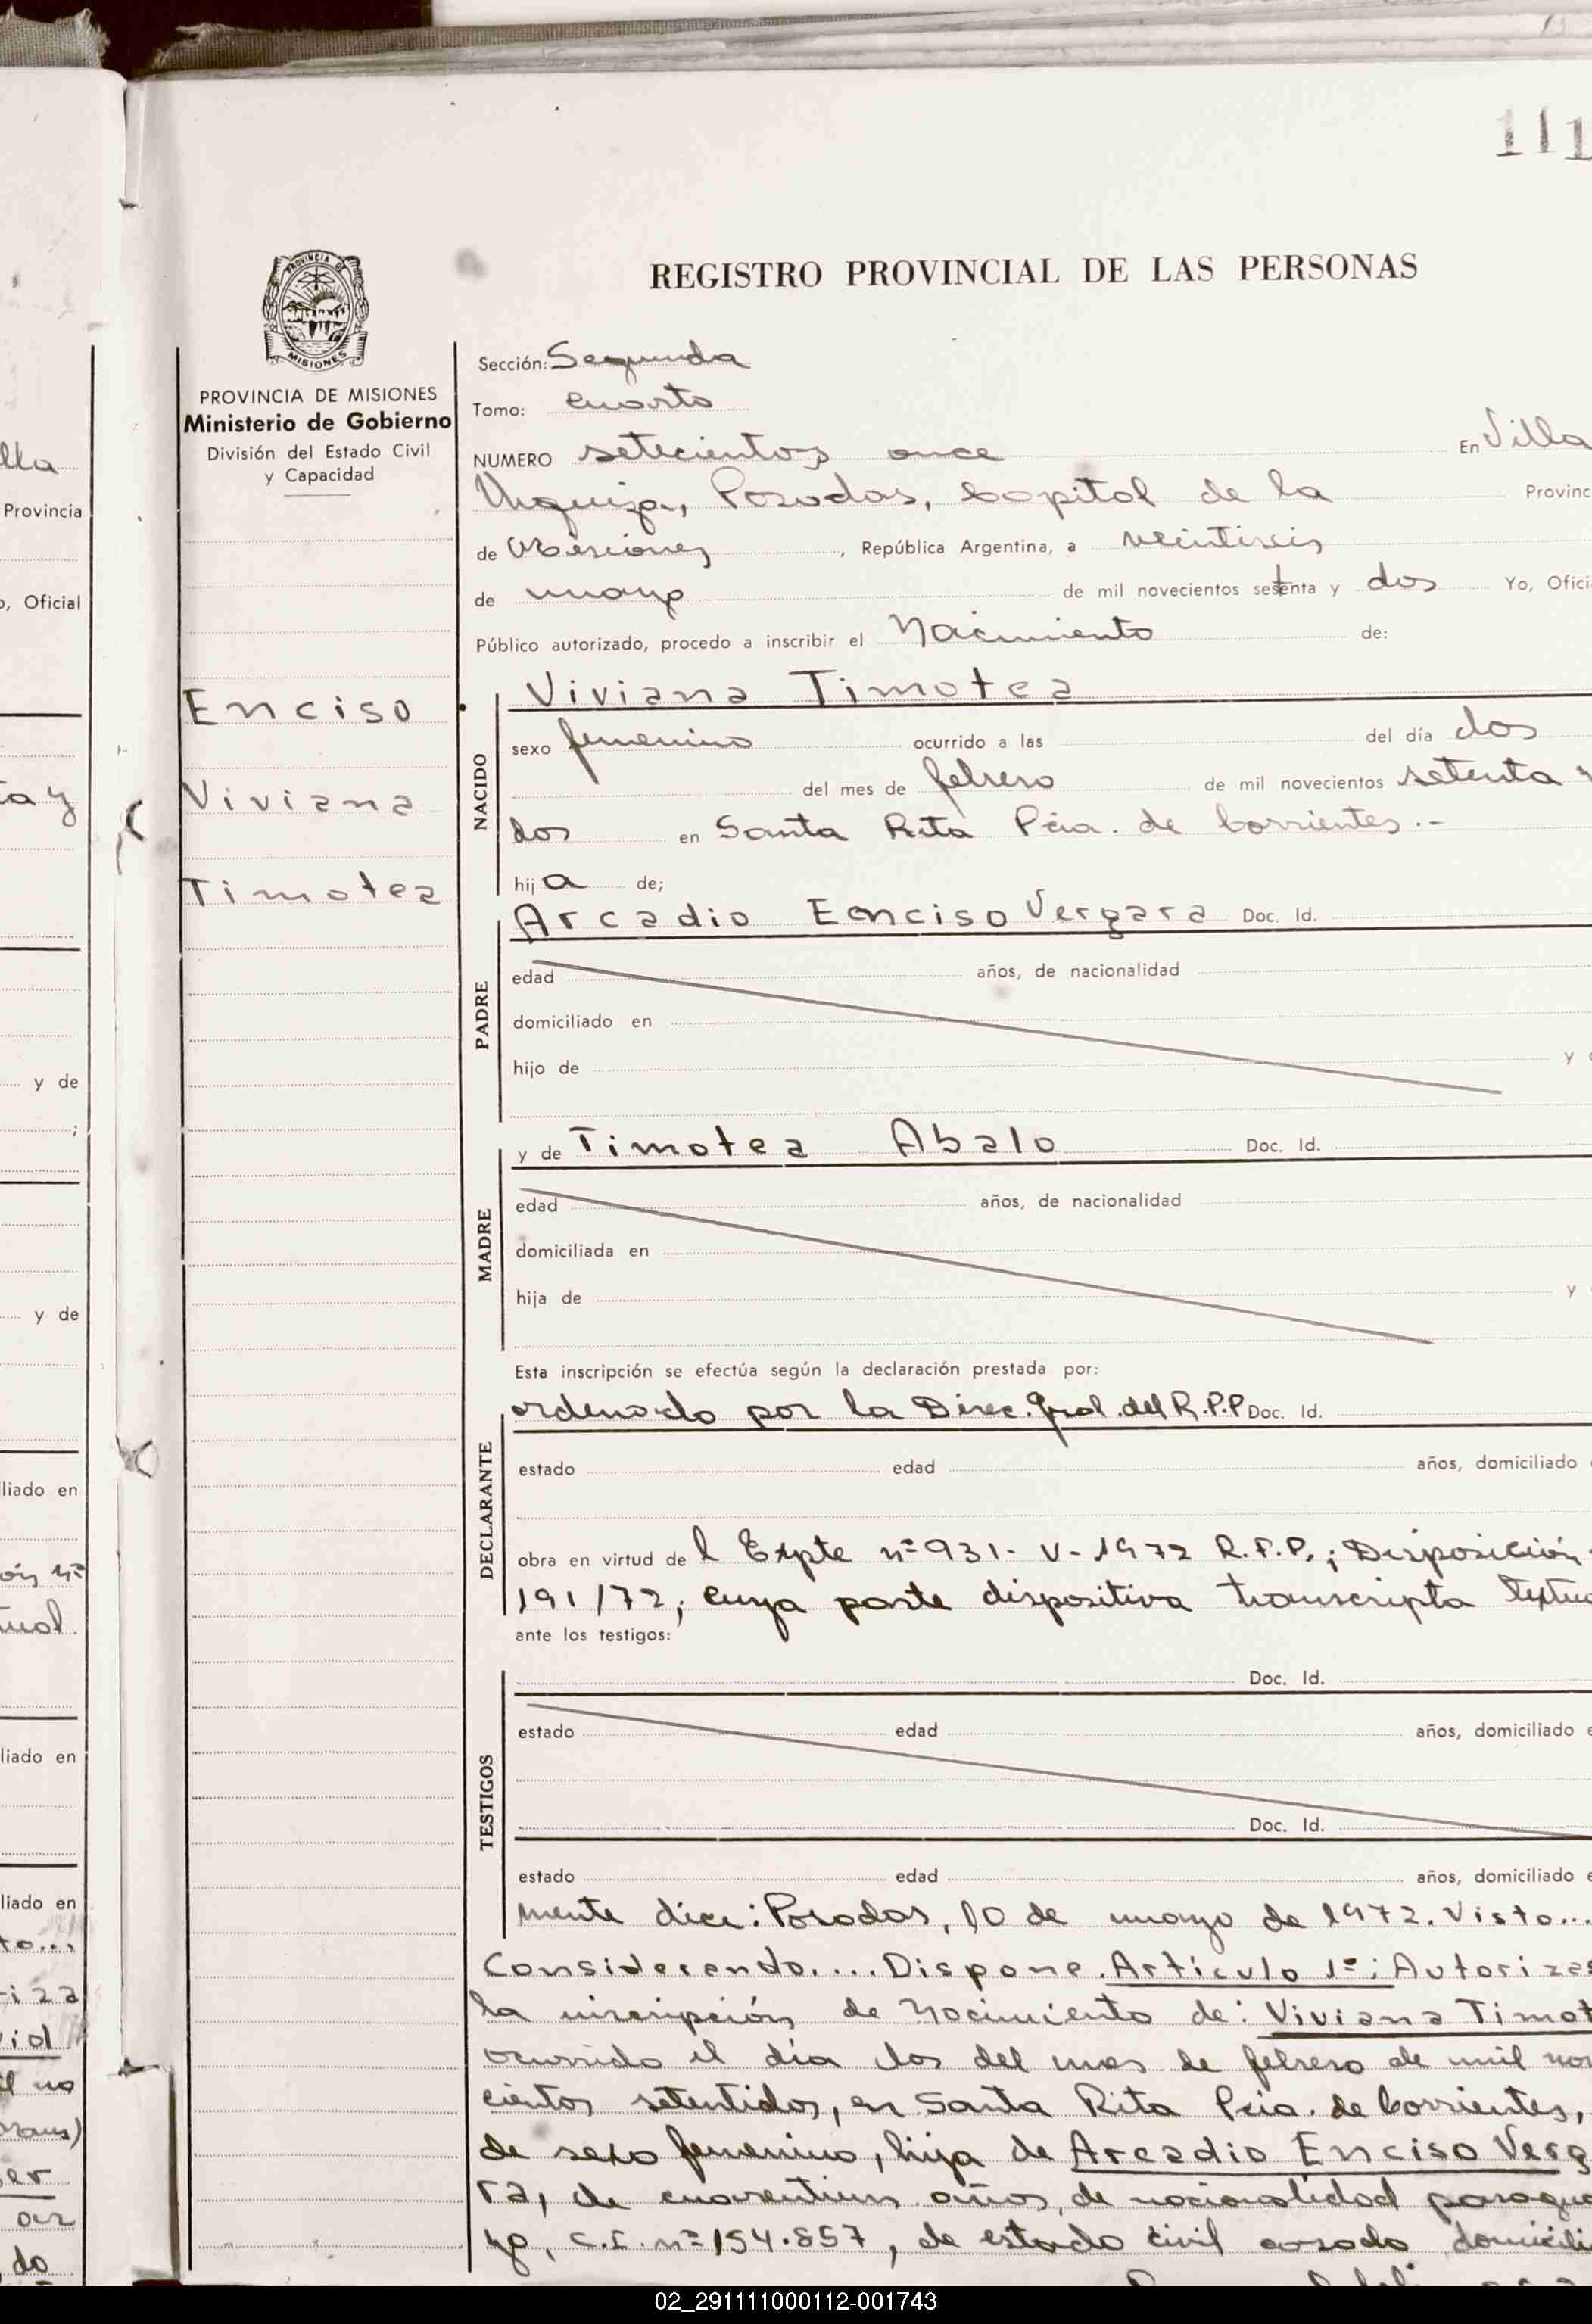 111
REGISTRO PROVINCIAL DE LAS PERSONAS
PROVINCIA DE
MISIONES
PROVINCIA DE MISIONES
Ministerio de Gobierno
División del Estado Civil
y Capacidad
Enciso
Viviana
Timotea
Sección: Segunda
Tomo: cuarto
NUMERO setecientos once En Villa
Urquiza, Posadas, Capital de la Provinc
de Misiones, República Argentina, a veintiseis
de mayo de mil novecientos setenta y dos Yo, Ofici
Público autorizado, procedo a inscribir el Nacimiento de:
NACIDO
Viviana Timotea
sexo femenino ocurrido a las del día dos
del mes de febrero de mil novecientos setenta y
dos en Santa Rita Pcia. de Corrientes.-
hija de;
PADRE
Arcadio Enciso Vergara Doc. Id.
edad años, de nacionalidad
domiciliado en
hijo de y
MADRE
y de Timotea Abalo Doc. Id.
edad años, de nacionalidad
domiciliada en
hija de y
Esta inscripción se efectúa según la declaración prestada por:
DECLARANTE
ordenado por la Direc. Gral. del R.P.P Doc. Id.
estado edad años, domiciliado
obra en virtud del Expte nº 931- V- 1972 R.P.P.; Disposición
191/72; cuya parte dispositiva transcripta textua
ante los testigos:
TESTIGOS
Doc. Id.
estado edad años, domiciliado e
Doc. Id.
estado edad años, domiciliado e
mente dice: Posadas, 10 de mayo de 1972. Visto...
Considerando.... Dispone. Artículo 1º: Autorizas
la inscripción de Nacimiento de: Viviana Timot
ocurrido el día dos del mes de febrero de mil nov
cientos setentidos, en Santa Rita Pcia. de Corrientes,
de sexo femenino, hija de Arcadio Enciso Verg
ra, de cuarentiun años, de nacionalidad paragua
yo, C.I. nº 154.857, de estado civil casado domicili
lla
Provincia
o, Oficial
ta y
y de
;
y de
liado en
ón nº
tual.
liado en
liado en
to...
riza
il no
er
do
02_291111000112-001743